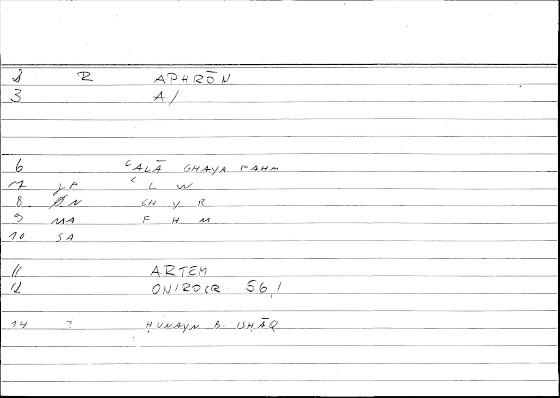 2 R APHRŌN
3 A/
6 ʿALĀ GHAYR FAHM
7 JP ʿ L W
8 PN GH Y R
9 MA F H M
10 SA
11 ARTEM
12 ONIROCR 56,1
14 ? ḤUNAYN B. ISḤĀQ